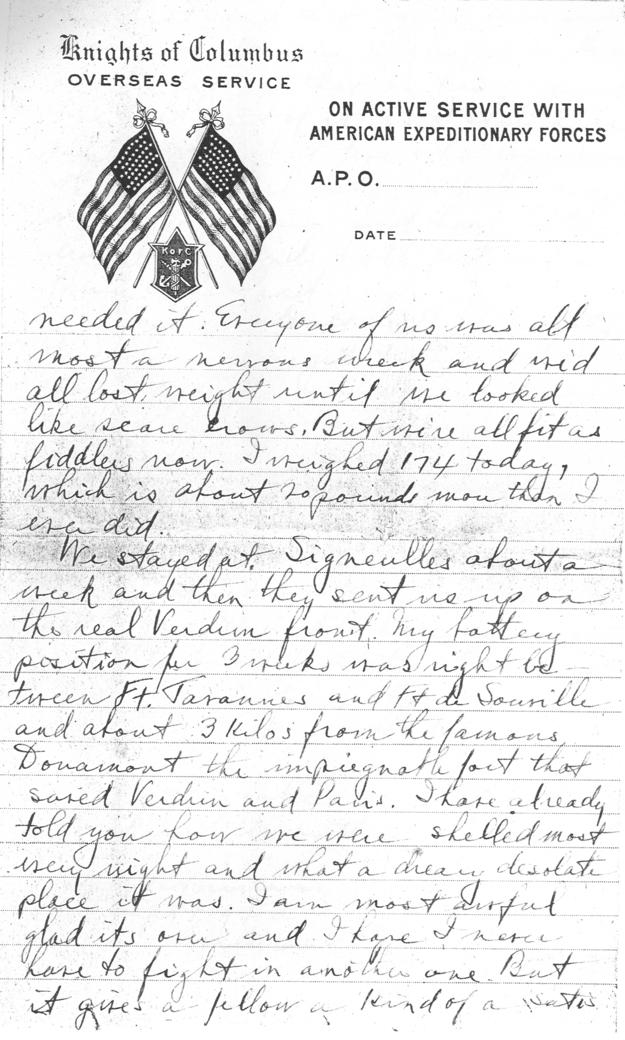 Knights of Columbus
OVERSEAS SERVICE
ON ACTIVE SERVICE WITH
AMERICAN EXPEDITIONARY FORCES
A.P.O.
DATE
K of C
needed it. Everyone of us was all
most a nervous wreck and we'd
all lost weight until we looked
like scare crows. But we're all fit as
fiddlers now. I weighed 174 today,
which is about 20 pounds more than I
ever did.
We stayed at Signeulles about a
week and then they sent us up on
the real Verdun front. My battery
position for 3 weeks was right be-
tween Ft. Tavannes and Ft de Souville
and about 3 kilos from the famous
Douamont the impregnable fort that
saved Verdun and Paris. I have already
told you how we were shelled most
every night and what a dreary desolate
place it was. I am most awful
glad its over and I hope I never
have to fight in another one. But
it gives a fellow a kind of a satis